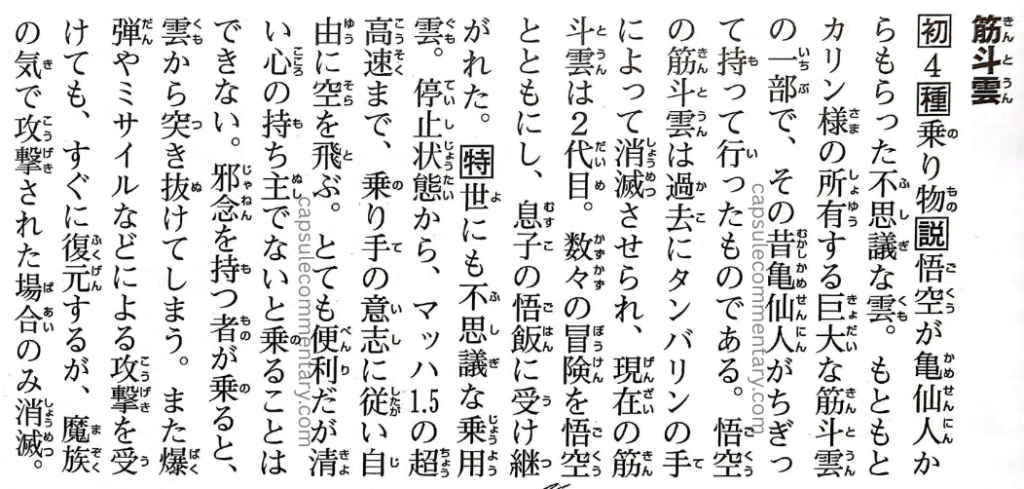 筋斗雲
初4種乗り物説悟空が亀仙人か
らもらった不思議な雲。もともと
カリン様の所有する巨大な筋斗雲
の一部で、その昔亀仙人がちぎっ
て持って行ったものである。悟空
の筋斗雲は過去にタンバリンの手
によって消滅させられ、現在の筋
斗雲は2代目。数々の冒険を悟空
とともにし、息子の悟飯に受け継
がれた。特世にも不思議な乗用
雲。停止状態から、マッハ1.5の超
高速まで、乗り手の意志に従い自
由に空を飛ぶ。とても便利だが清
い心の持ち主でないと乗ることは
できない。邪念を持つ者が乗ると、
雲から突き抜けてしまう。また爆
弾やミサイルなどによる攻撃を受
けても、すぐに復元するが、魔族
の気で攻撃された場合のみ消滅。
capsulecommentary.com
capsulecommentary.com